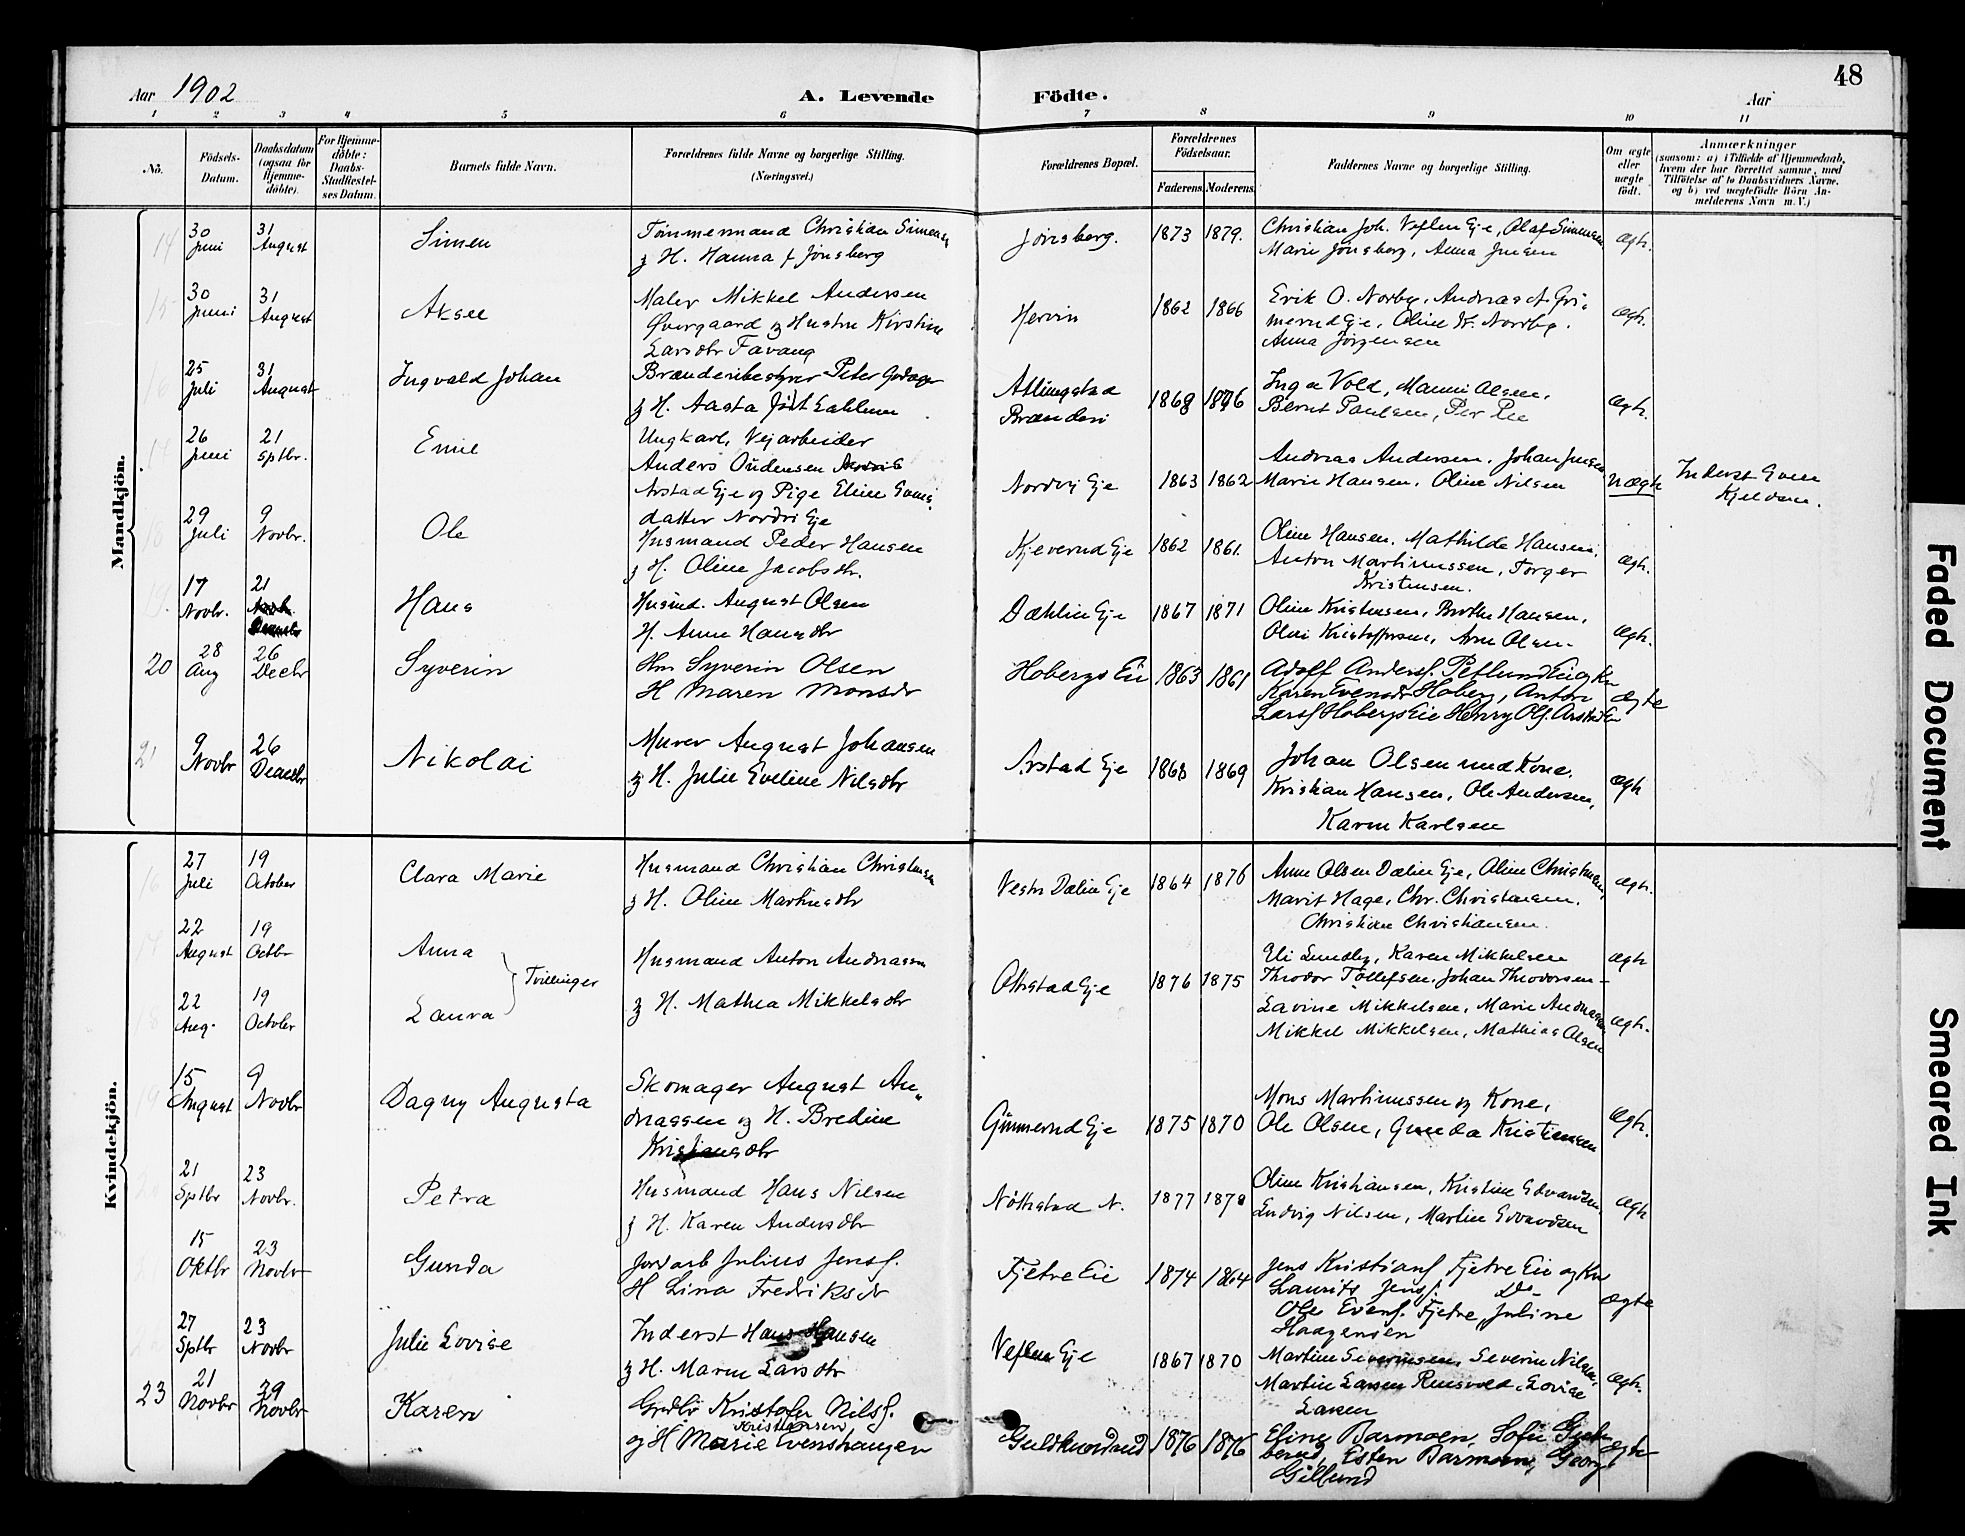 48
Aar 1902
A. Levende Födte.
Aar
1 2 3 4 5 6 7 8 9 10 11
No.
Födsels-Datum.
Daabsdatum (ogsaa for Hjemmedöbte).
For Hjemmedöbte: Daabs-Stadfæstelses Datum.
Barnets fulde Navn.
Forældrenes fulde Navne og borgerlige Stilling. (Næringsvei.)
Forældrenes Bopæl.
Forældrenes Födselsaar.
Faderens. Moderens.
Faddernes Navne og borgerlige Stilling.
Om ægte eller uægte födt.
Anmærkninger
(saasom: a) i Tilfælde af Hjemmedaab,
hvem der har forrettet samme, med
Tilföielse af to Daabsvidners Navne,
og b) ved uægtefödte Börn Anmelderens Navn m. V.)
Mandkjön.
14 30 Juni 31 August Simen
Tømmermand Christian Simensen
og H. Hanna f Jønsberg
Jønsberg. 1873 1879.
Christian Joh. Vesten Eje, Olaf Simensen
Marie Jønsberg, Anna Jensen
ægt.
15 30 Juni 31 August Aksel
Maler Mikkel Andersen
Øvergaard og Hustru Kirstine
Larsdtr Favang
1862 1866
Erik O. Norby, Andreas A.
Eje, Oline K. Nordby.
Anna Jörgensen
ægt.
16 25 Juli 31 August Ingvald Johan
Brænderibestyrer Peter
og H. Aasta
Atlungstad
Brænderi
1868 1876
Inga Vold, Manni Olsen,
Bernt Paulsen, Per
ægt.
17 26 Juni 21 Sptbr. Emil
Ungkarl, Vejarbeider
Anders Audensen
Arstad Eje og Pige Eline
datter Nordvi Eje
Nordvi Eje 1863 1862
Andreas Andersen, Johan Jensen
Marie Hansen, Oline Nilsen
uægte
Inderst Even
Kjeldsen.
18 29 Juli 9 Novbr. Ole
Husmand Peder Hansen
og H. Oline Jacobsdtr.
Kjeverud Eje 1862 1861.
Oline Hansen, Mathilde Hansen,
Anton Martinussen, Torger
Kristensen.
ægt.
19. 17 Novbr. 21 Hans
Husmd. August Olsen
H. Anne Hansdtr
Dæhlin Eje 1867 1871
Oline Kristensen, Berthe Hansen,
Olai Kristoffersen, Arne Olsen.
ægt.
20 28 Aug 26 Decbr Syverin
Hm Syverin Olsen
H Maren Monsdr
Hobergs Eie 1863 1861
Adolf Andersf. Petlund Eie og Kn
Karen Evensdr Hoberg, Anton
Larsf Hobergs Eie Henry Olsf. Arstad Eie
ægte
21 9 Novbr 26 Decembr Nikolai
Murer August Johansen
og H. Julie Eveline Nilsdtr
Arstad Eje 1868 1869
Johan Olsen med Kone.
Kristian Hansen, Ole Andersen,
Karen Karlsen
ægt
Kvindekjön.
16 27 Juli 19 October Clara Marie
Husmand Christian Christensen
og H. Oline Martinsdtr
Vestre Dælin Eje 1864 1876
Anne Olsen Dælin Eje, Oline Christensen,
Marit Hage, Chr. Christensen,
Christian Christiansen.
ægt.
17 22 August 19 Octbr Anna
18 22 Aug. 19 Octobr Laura
Tvillinger
Husmand Anton Andreassen
og H. Mathea Mikkelsdtr
Ottestad Eje 1876 1875
Eli Lundby, Karen Mikkelsen
Theodor Tollefsen, Johan Theodorsen
ægt
Lavine Mikkelsen, Marie Andreassen
Mikkel Mikkelsen, Mathias Olsen
ægt.
19 15 August 9 Novbr Dagny Augusta
Skomager August An-
dreassen og H. Bredine
Kristiansdtr
Grimmerud Eje 1875 1870
Mons Martinussen og Kone,
Ole Olsen, Gunda Kristiansen
ægt.
20 21 Sptbr 23 Novbr. Petra
Husmand Hans Nilsen
og H. Karen Andersdtr
Nöttestad N. 1877 1878
Oline Kristiansen, Kristine Edvardsen,
Ludvig Nilsen, Martin Edvardsen
ægt
15 Oktbr 23 Novbr Gunda
Jordarb Julius Jensf.
H Lina Fredriksdr
Fjetre Eie 1874 1864
Jens Kristiansf Fjetre Eie og Kn
Laurits Jensf. Do
Ole Evensf. Fjetre, Juline
Haagensen
ægte
27 Sptbr 23 Novbr Julie Lovise
Inderst Hans Hansen
og H. Maren Larsdtr
Veflen Eje 1867 1870
Martine Severinsen, Severin Nilsen,
Martin Larsen Rensvold, Lovise
Larsen
ægt.
23 21 Novbr 29 Novbr Karen
Kristofer Nilsf.
Kristiansen
og H Marie Evenshaugen
Guldknordrud 1876 1876
Eline Barmoen, Sofie
Esten Barmoen, Georg
Gillund
ægte
Faded Document
Smeared Ink